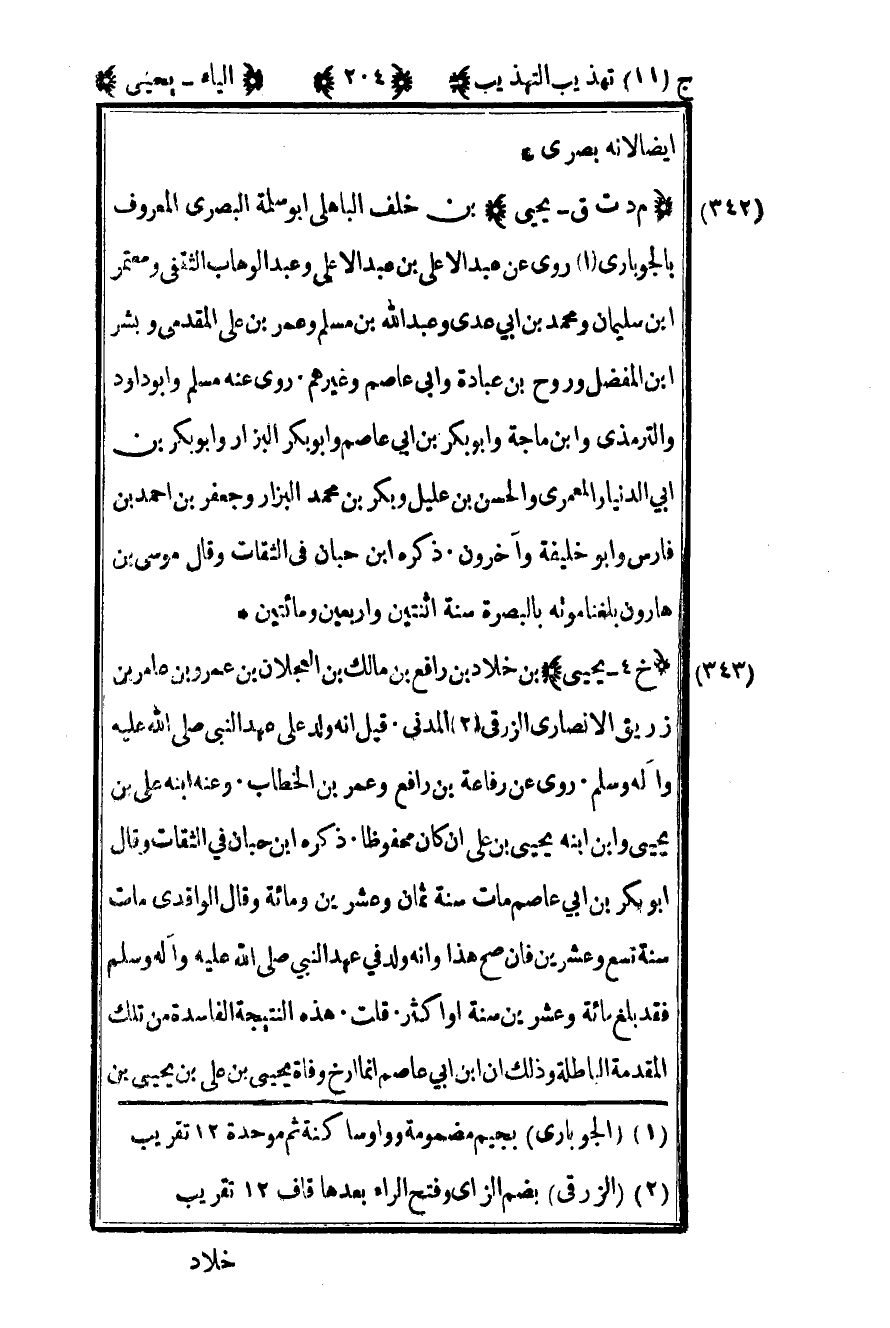 ج (١١) تهذيب التهذيب ﴾ ﴿ ٢٠٤ ﴾ ﴿ الياء - يحيى ﴾
ايضا لانه بصرى *
(٣٤٢) ﴿ م د ت ق - يحيى ﴾ بن خلف الباهلى ابو سلمة البصرى المعروف
بالجوبارى (١) روى عن عبد الاعلى بن عبد الاعلى وعبد الوهاب الثقفى ومعتمر
ابن سليمان ومحمد بن ابي عدى وعبد الله بن مسلم وعمر بن على المقدمى وبشر
ابن المفضل وروح بن عبادة وابي عاصم وغيرهم . روى عنه مسلم وابو داود
والترمذى وابن ماجة وابو بكر بن ابي عاصم وابو بكر البزار وابو بكر بن
ابي الدنيا والمعمرى والحسن بن عليل وبكر بن محمد البزار وجعفر بن احمد بن
فارس وابو خليفة وآخرون . ذكره ابن حبان فى الثقات وقال موسى بن
هارون بلغنا موته بالبصرة سنة اثنتين واربعين ومائتين *
(٣٤٣) ﴿ خ ٤ - يحيى ﴾ بن خلاد بن رافع بن مالك بن العجلان بن عمرو بن عامر بن
زريق الانصارى الزرقى (٢) المدنى . قيل انه ولد على عهد النبى صلى الله عليه
وآله وسلم . روى عن رفاعة بن رافع وعمر بن الخطاب . وعنه ابنه على بن
يحيى وابن ابنه يحيى بن على ان كان محفوظا . ذكره ابن حبان في الثقات وقال
ابو بكر بن ابي عاصم مات سنة ثمان وعشرين ومائة وقال الواقدى مات
سنة تسع وعشرين فان صح هذا وانه ولد في عهد النبي صلى الله عليه وآله وسلم
فقد بلغ مائة وعشرين سنة او اكثر . قلت . هذه النتيجة الفاسدة من تلك
المقدمة الباطلة وذلك ان ابن ابي عاصم انما ارخ وفاة يحيى بن على بن يحيى بن
(١) (الجوبارى) بجيم مضمومة وواو ساكنة ثم موحدة ١٢ تقريب
(٢) (الزرقى) بضم الزاى وفتح الراء بعدها قاف ١٢ تقريب
خلاد